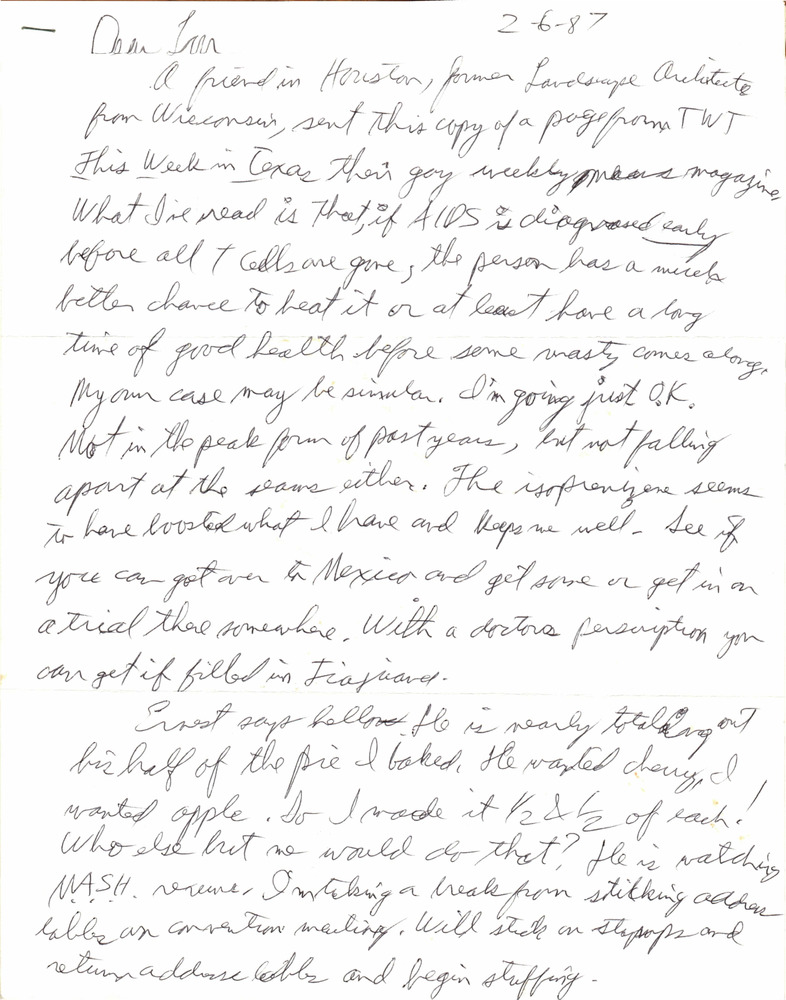 2-6-87
Dear
A friend in Houston, former Landscape Architecte
from Wisconsin, sent this copy of a page from TWT
This Week in Texas their gay weekly magazine,
What I've read is that, if AIDS is diagnosed early
before all T cells are gone, the person has a much
better chance to beat it or at least have a long
time of good health before some nasty comes along.
My own case may be similar. I'm going just O.K.
Not in the peak form of past years, but not falling
apart at the seams either. The seems
to have boosted what I have and keeps me well - See if
you can get over to Mexico and get some or get in on
a trial there somewhere. With a doctors perscription you
can get if filled in Tiajuana.
Ernest says hello. He is nearly out
his half of the pie I baked. He wanted cherry, I
wanted apple. So I made it 1/2 & 1/2 of each!
Who else but me would do that? He is watching
M.A.S.H. I'm taking a break from stikking address
lables on convention mailing. Will stick on and
return address lables and begin stuffing.